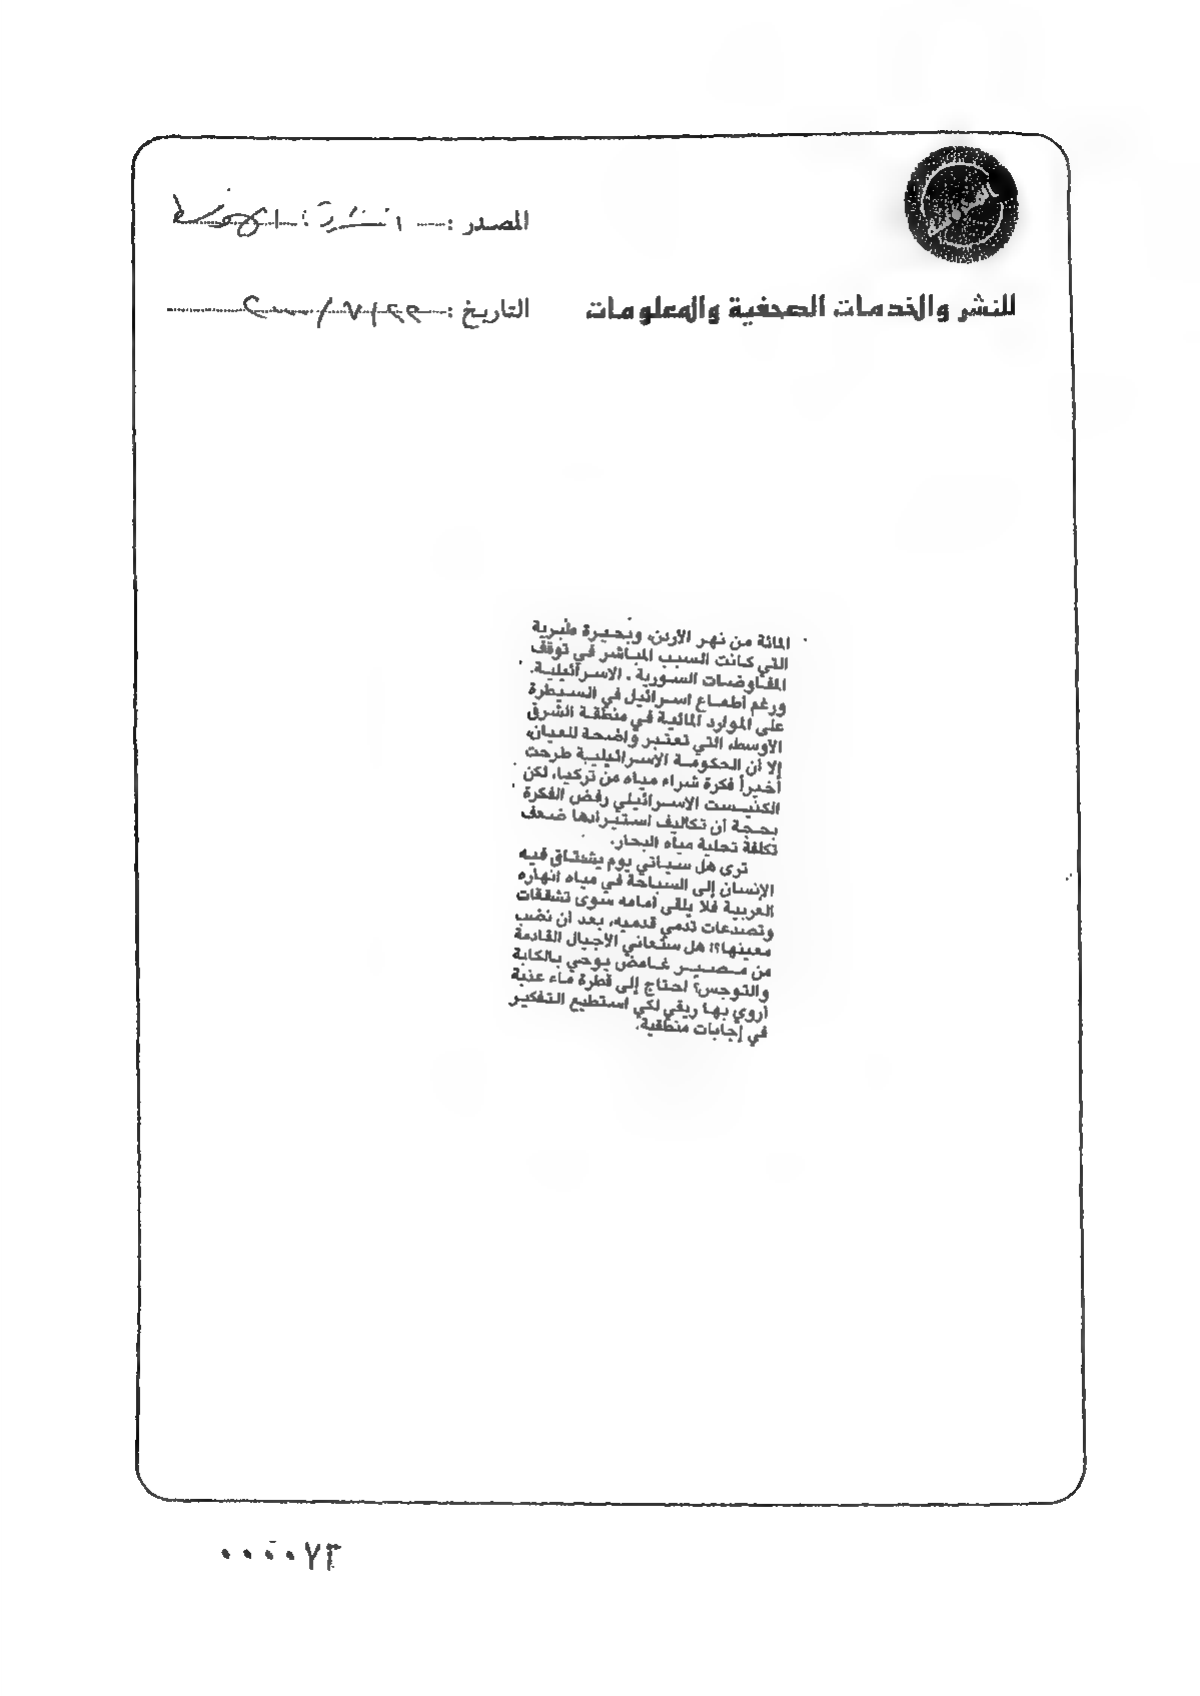 المصدر : الشرق الأوسط
التاريخ : ٢٢/٧/٢٠٠٠
للنشر والخدمات الصحفية والمعلومات
المائة من نهر الأردن، وبحيرة طبرية
التي كانت السبب المباشر في توقف
المفاوضات السورية ـ الاسرائيلية.
ورغم أطماع اسرائيل في السيطرة
على الموارد المائية في منطقة الشرق
الأوسط، التي تعتبر واضحة للعيان،
إلا أن الحكومة الاسرائيلية طرحت
أخيراً فكرة شراء مياه من تركيا، لكن
الكنيست الاسرائيلي رفض الفكرة
بحجة أن تكاليف استيرادها ضعف
تكلفة تحلية مياه البحار.
ترى هل سيأتي يوم يشتاق فيه
الإنسان إلى السباحة في مياه انهاره
العربية فلا يلقى أمامه سوى تشققات
وتصدعات تدمي قدميه، بعد أن نضب
معينها؟! هل ستعاني الأجيال القادمة
من مصير غامض يوحي بالكآبة
والتوجس؟ احتاج إلى قطرة ماء عذبة
أروي بها ريقي لكي استطيع التفكير
في إجابات منطقية.
٠٠٠٠٧٣